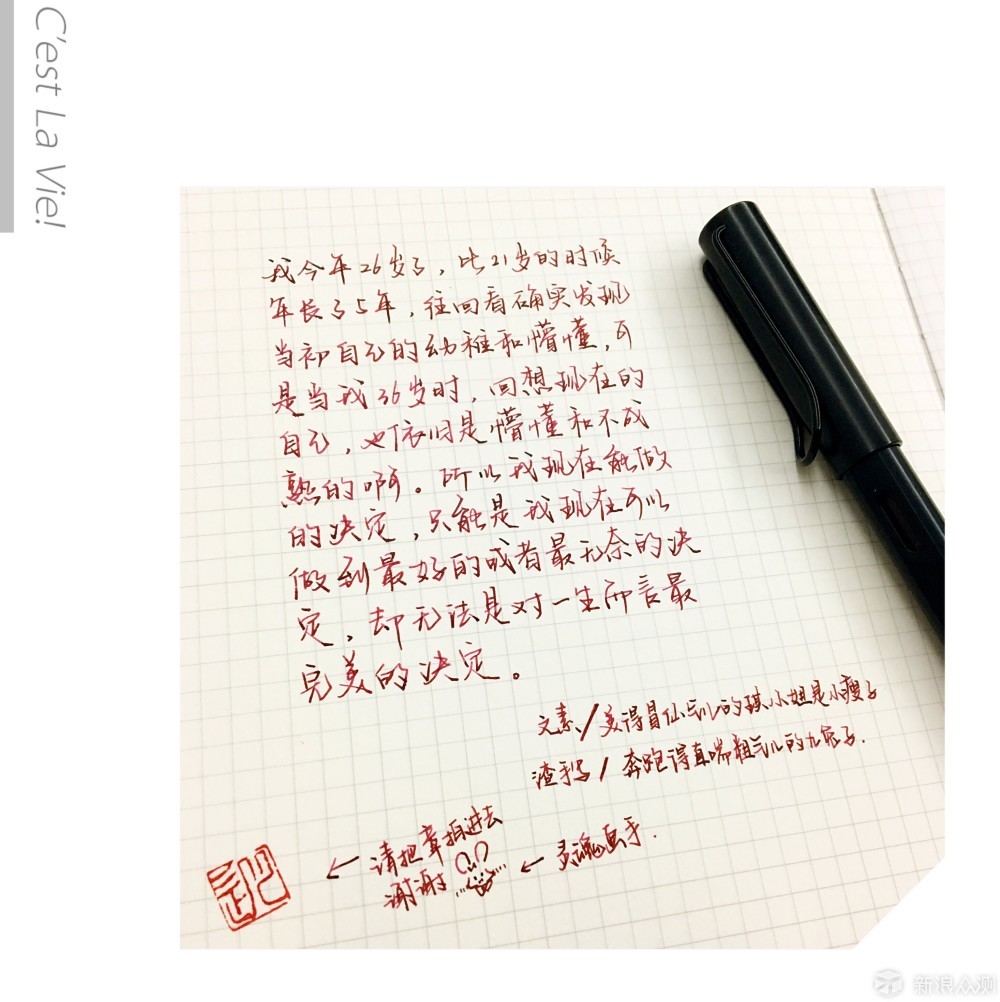 C'est La Vie!
我今年26岁了，比21岁的时候
年长了5年，往回看确实发现
当初自己的幼稚和懵懂，可
是当我36岁时，回想现在的
自己，也依旧是懵懂和不成
熟的啊。所以我现在能做
的决定，只能是我现在可以
做到最好的或者最无奈的决
定，却无法是对一生而言最
完美的决定。
文素/美得冒仙气儿的琪小姐是小瘦子
渣手写/奔跑得直喘粗气儿的九兔子.
请把章拍进去
谢谢
灵魂画手.
新浪众测